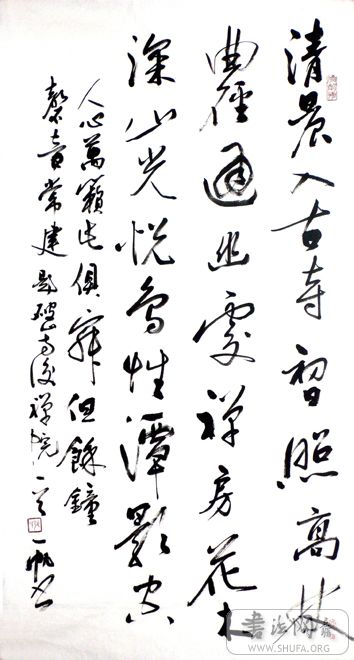 清晨入古寺初照高林
曲径通幽處禅房花木
深山光悦鸟性潭影空
人心萬籟此俱寂但餘鐘
磬音常建題破山寺後禅院一首
一帆书
书法网
WWW.SHUFA.ORG